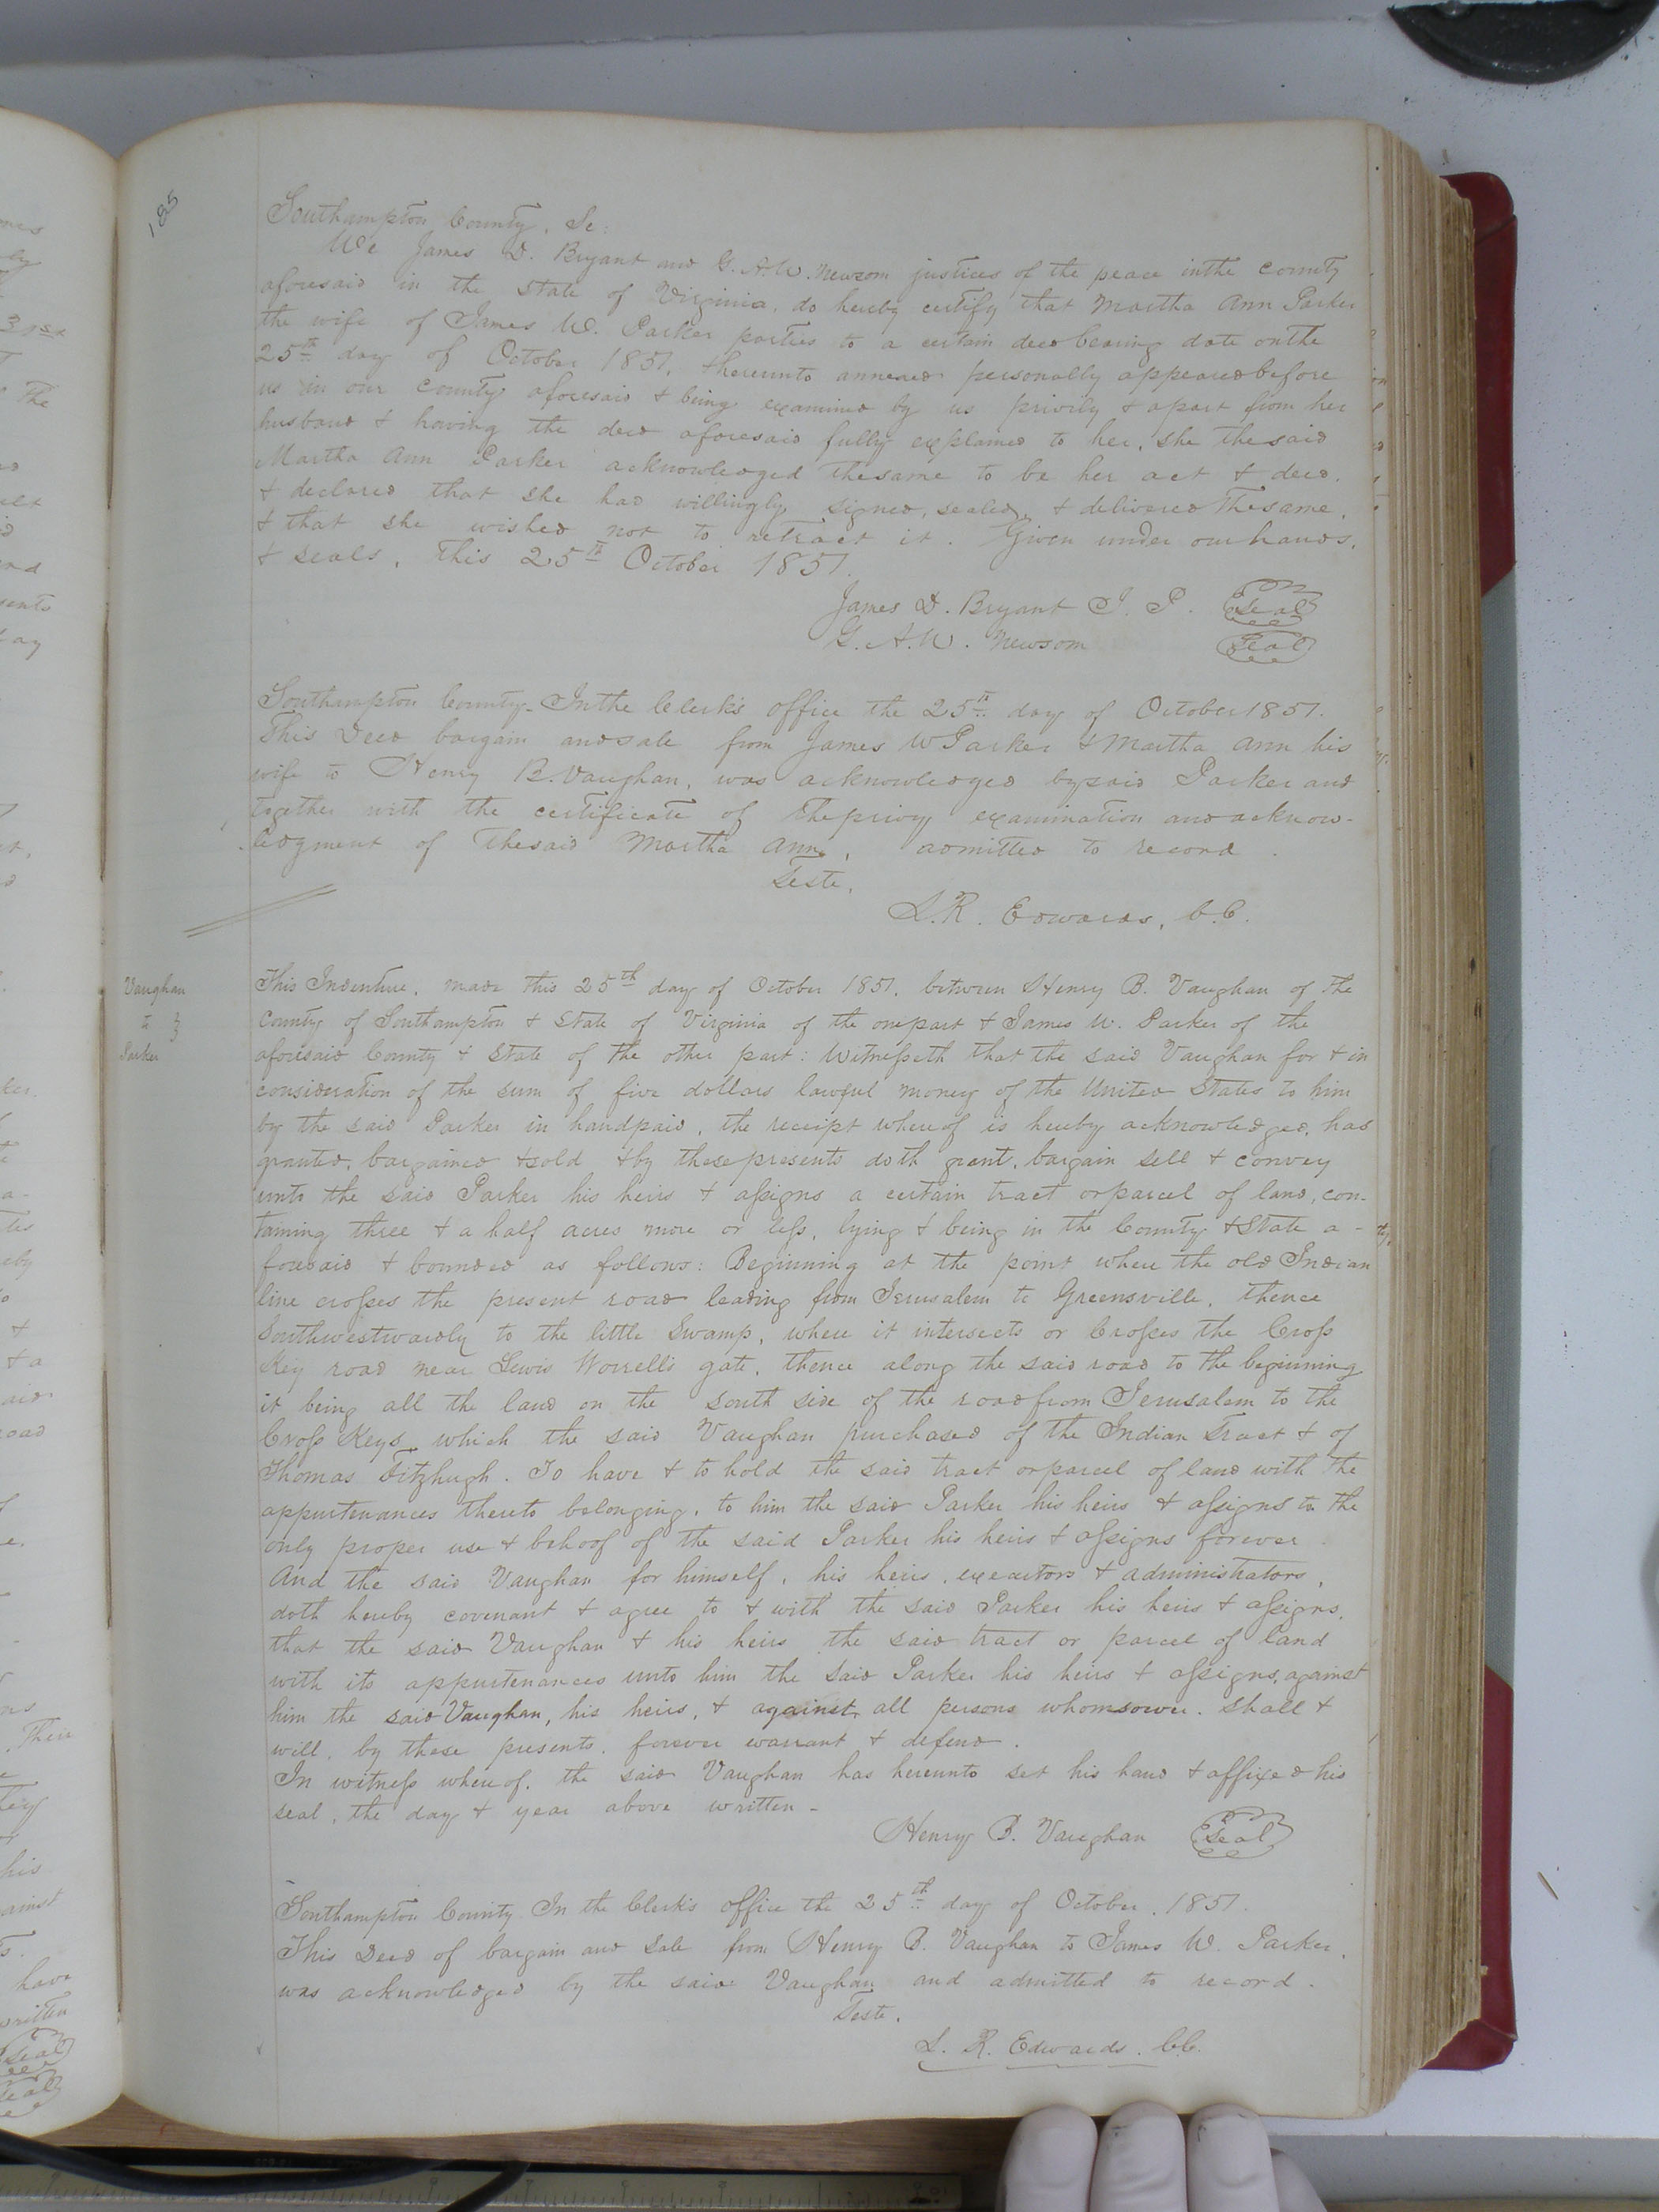 185
Southampton County, Sc:
We James D. Bryant and G. A. W. Newsom justices of the peace in the county
aforesaid in the state of Virginia, do hereby certify that Martha Ann Parker
the wife of James W. Parker parties to a certain deed bearing date on the
25th day of October 1851, thereunto annexed personally appeared before
us in our county aforesaid & being examined by us privily & apart from her
husband & having the deed aforesaid fully explained to her, she the said
Martha Ann Parker acknowledged the same to be her act & deed.
& declared that she had willingly signed, sealed, & delivered the same,
& that she wished not to retract it. Given under our hands,
& seals, this 25th October 1851.
James D. Bryant J. P. Seal
G. A. W. Newsom Seal
Southampton County - In the Clerk's office the 25th day of October 1851.
This Deed bargain and sale from James W Parker & Martha Ann his
wife to Henry B. Vaughan, was acknowledged by said Parker and
together with the certificate of the privy examination and acknow-
ledgment of the said Martha Ann, admitted to record.
Teste,
L. R. Edwards, C.C.
Vaughan
to
Parker
This Indenture, made this 25th day of October 1851, between Henry B. Vaughan of the
County of Southampton & State of Virginia of the one part & James W. Parker of the
aforesaid County & State of the other part: Witnesseth that the said Vaughan for & in
consideration of the sum of five dollars lawful money of the United States to him
by the said Parker in hand paid, the receipt whereof is hereby acknowledged, has
granted, bargained & sold & by these presents doth grant, bargain sell & convey
unto the said Parker his heirs & assigns a certain tract or parcel of land, con-
taining three & a half acres more or less, lying & being in the County & State a-
foresaid & bounded as follows: Beginning at the point where the old Indian
line crosses the present road leading from Jerusalem to Greensville, thence
Southwestwardly to the little Swamp, where it intersects or Crosses the Cross
Key road near Lewis Worrell's gate, thence along the said road to the beginning
it being all the land on the south side of the road from Jerusalem to the
Cross Keys which the said Vaughan purchased of the Indian Tract & of
Thomas Fitzhugh. To have & to hold the said tract or parcel of land with the
appurtenances thereto belonging, to him the said Parker his heirs & assigns to the
only proper use & behoof of the said Parker his heirs & assigns forever.
And the said Vaughan for himself, his heirs, executors & administrators,
doth hereby covenant & agree to & with the said Parker his heirs & assigns,
that the said Vaughan & his heirs the said tract or parcel of land
with its appurtenances unto him the said Parker his heirs & assigns, against
him the said Vaughan, his heirs, & against all persons whomsoever. Shall &
will, by these presents, forever warrant & defend.
In witness whereof, the said Vaughan has hereunto set his hand & affixed his
seal, the day & year above written -
Henry B. Vaughan Seal
Southampton County In the Clerk's office the 25th day of October, 1851.
This Deed of bargain and sale from Henry B. Vaughan to James W. Parker,
was acknowledged by the said Vaughan and admitted to record.
Teste,
L. R. Edwards. C.C.